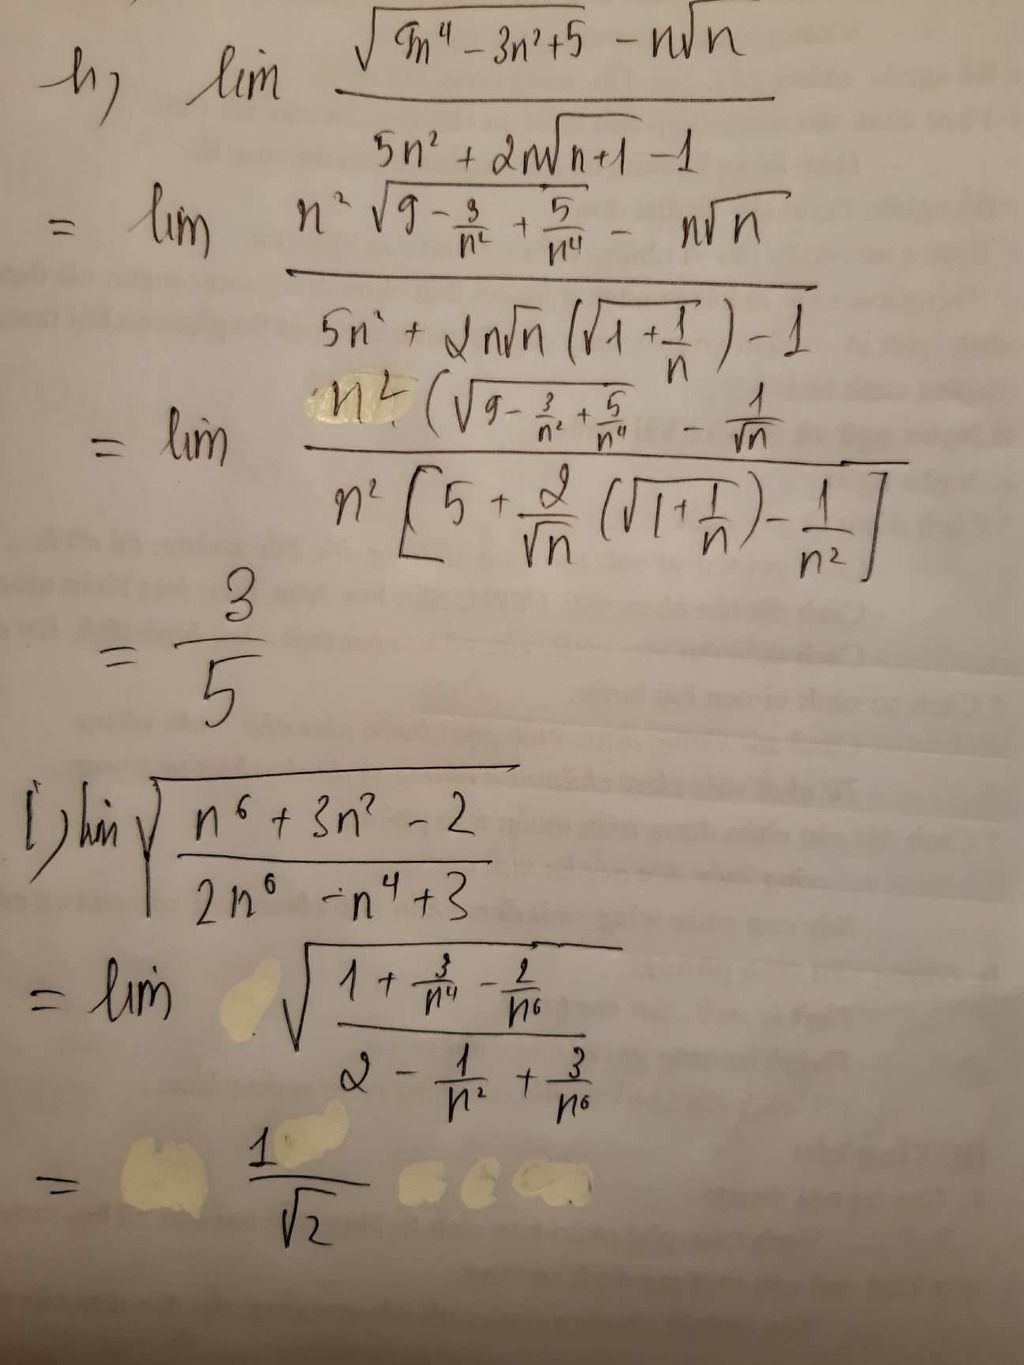 h) lim (√(9n⁴ - 3n² + 5) - n√n) / (5n² + 2n√(n+1) - 1)
= lim (n² √(9 - 3/n² + 5/n⁴) - n√n) / (5n² + 2n√n (√(1 + 1/n)) - 1)
= lim n² (√(9 - 3/n² + 5/n⁴) - 1/√n / n² [5 + 2/√n (√(1 + 1/n)) - 1/n²]
= 3/5
i) lim √((n⁶ + 3n² - 2) / (2n⁶ - n⁴ + 3))
= lim √((1 + 3/n⁴ - 2/n⁶) / (2 - 1/n² + 3/n⁶))
= 1/√2